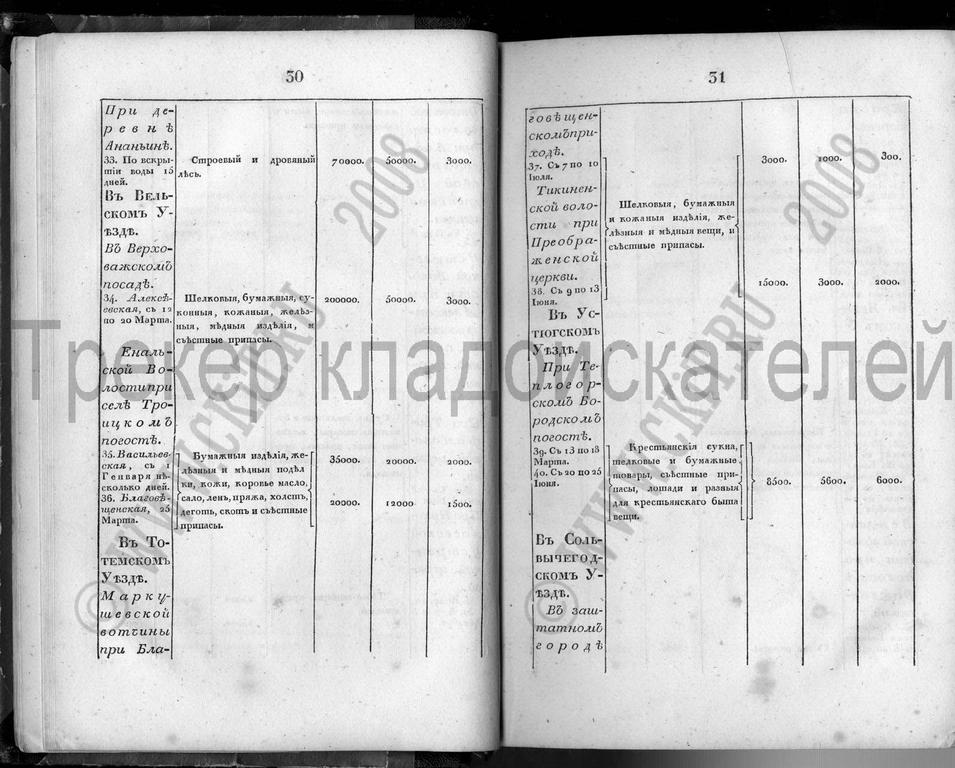 30
При де-
ревнѣ
Ананьинѣ.
33. По вскры-
тіи воды 15
дней.
Строевый и дровяный
лѣсъ.
70000. 50000. 3000.
Въ Вель-
скомъ У-
ѣздѣ.
Въ Верхо-
важскомъ
посадѣ.
34. Алексѣ-
евская, съ 12
по 20 Марта.
Шелковыя, бумажныя, су-
конныя, кожаныя, желѣз-
ныя, мѣдныя издѣлія, и
съѣстные припасы.
200000. 50000. 3000.
Еналь-
ской Во-
лости при
селѣ Тро-
ицкомъ
погостѣ.
35. Васильев-
ская, съ 1
Генваря нѣ-
сколько дней.
36. Благовѣ-
щенская, 25
Марта.
Бумажныя издѣлія, же-
лѣзныя и мѣдныя подѣл
ки, кожи, коровье масло,
сало, ленъ, пряжа, холстъ,
деготь, скотъ и съѣстные
припасы.
35000. 20000. 2000.
20000. 12000 1500.
Въ То-
темскомъ
Уѣздѣ.
Марку-
шевской
вотчины
при Бла-
31
говѣщен-
скомъ при-
ходѣ.
37. Съ 7 по 10
Іюля.
3000. 1000. 300.
Тикинен-
ской воло-
сти при
Преобра-
женской
церкви.
38. Съ 9 по 13
Іюня.
Шелковыя, бумажныя
и кожаныя издѣлія, же-
лѣзныя и мѣдныя вещи, и
съѣстные припасы.
15000. 3000. 2000.
Въ Ус-
тюгскомъ
Уѣздѣ.
При Те-
плогор-
скомъ Бо-
родскомъ
погостѣ.
39. Съ 13 по 18
Марта.
40. Съ 20 по 25
Іюня.
Крестьянскія сукна,
шелковые и бумажные
товары, съѣстные при-
пасы, лошади и разныя
для крестьянскаго быта
вещи.
8500. 5600. 6000.
Въ Соль-
вычегод-
скомъ У-
ѣздѣ.
Въ заш-
татномъ
городѣ
Трокер кладоискателей
© WWW.CKAP.RU 2008
© WWW.CKAP.RU 2008